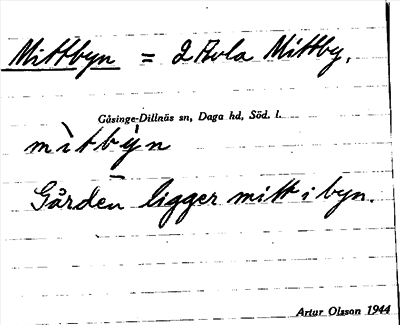 Mittbyn = 2 Kola Mittby.
Gåsinge-Dillnäs sn, Daga hd, Söd. l.
mìtbỳn
Gården ligger mitt i byn.
Artur Olsson 1944